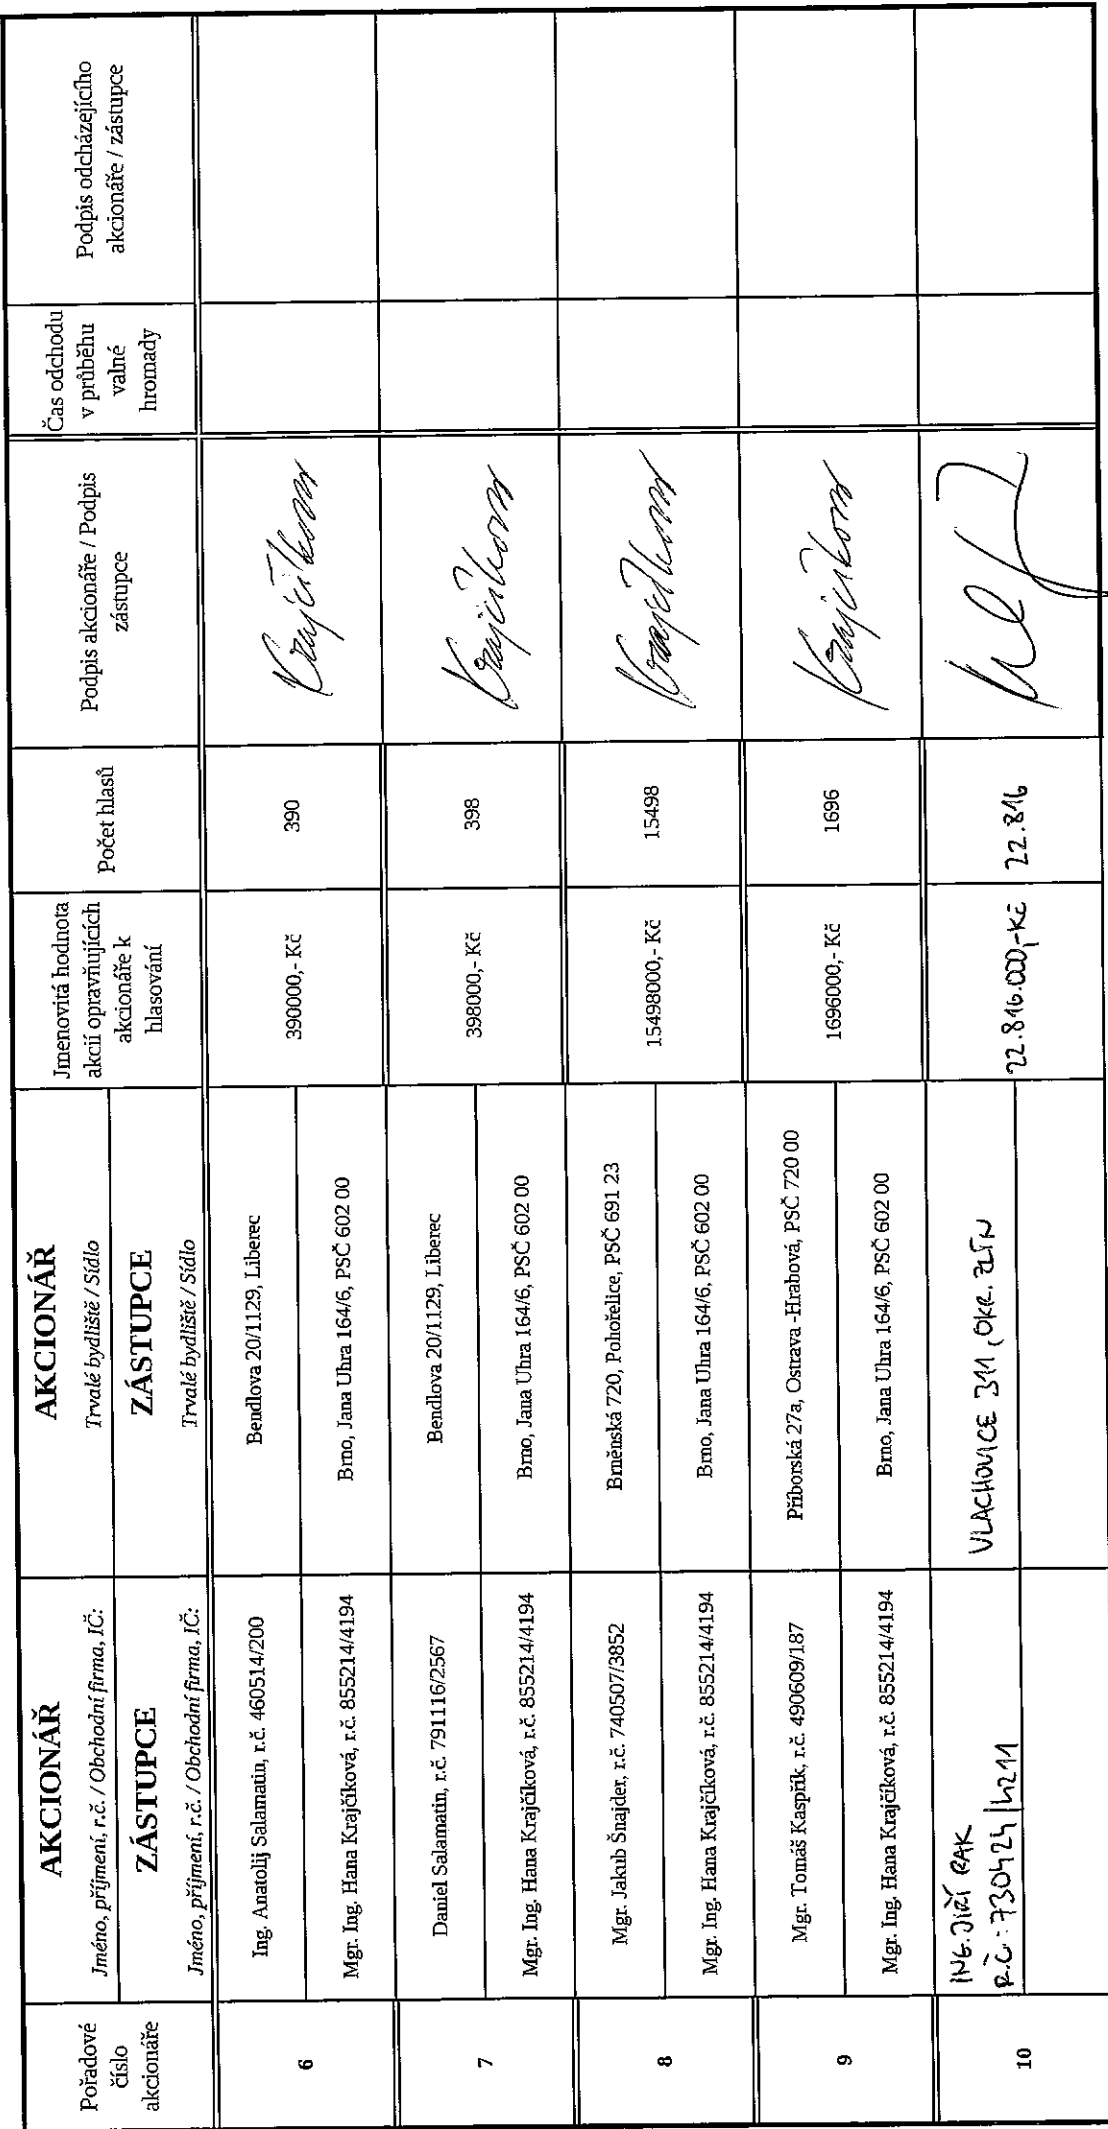 Pořadové
číslo
akcionáře
AKCIONÁŘ
Jméno, příjmení, r.č. / Obchodní firma, IČ:
ZÁSTUPCE
Jméno, příjmení, r.č. / Obchodní firma, IČ:
AKCIONÁŘ
Trvalé bydliště / Sídlo
ZÁSTUPCE
Trvalé bydliště / Sídlo
Jmenovitá hodnota
akcií opravňujících
akcionáře k
hlasování
Počet hlasů
Podpis akcionáře / Podpis
zástupce
Čas odchodu
v průběhu
valné
hromady
Podpis odcházejícího
akcionáře / zástupce
6
Ing. Anatolij Salamatin, r.č. 460514/200
Bendlova 20/1129, Liberec
Mgr. Ing. Hana Krajčíková, r.č. 855214/4194
Brno, Jana Uhra 164/6, PSČ 602 00
390000,- Kč
390
Krajčíková
7
Daniel Salamatin, r.č. 791116/2567
Bendlova 20/1129, Liberec
Mgr. Ing. Hana Krajčíková, r.č. 855214/4194
Brno, Jana Uhra 164/6, PSČ 602 00
398000,- Kč
398
Krajčíková
8
Mgr. Jakub Šnajder, r.č. 740507/3852
Brněnská 720, Pohořelice, PSČ 691 23
Mgr. Ing. Hana Krajčíková, r.č. 855214/4194
Brno, Jana Uhra 164/6, PSČ 602 00
15498000,- Kč
15498
Krajčíková
9
Mgr. Tomáš Kaspřík, r.č. 490609/187
Příborská 27a, Ostrava -Hrabová, PSČ 720 00
Mgr. Ing. Hana Krajčíková, r.č. 855214/4194
Brno, Jana Uhra 164/6, PSČ 602 00
1696000,- Kč
1696
Krajčíková
10
ING. JIŘÍ RAK
R.Č.: 730424/4211
VLACHOVICE 311, OKR. ZLÍN
22.816.000,-Kč
22.816